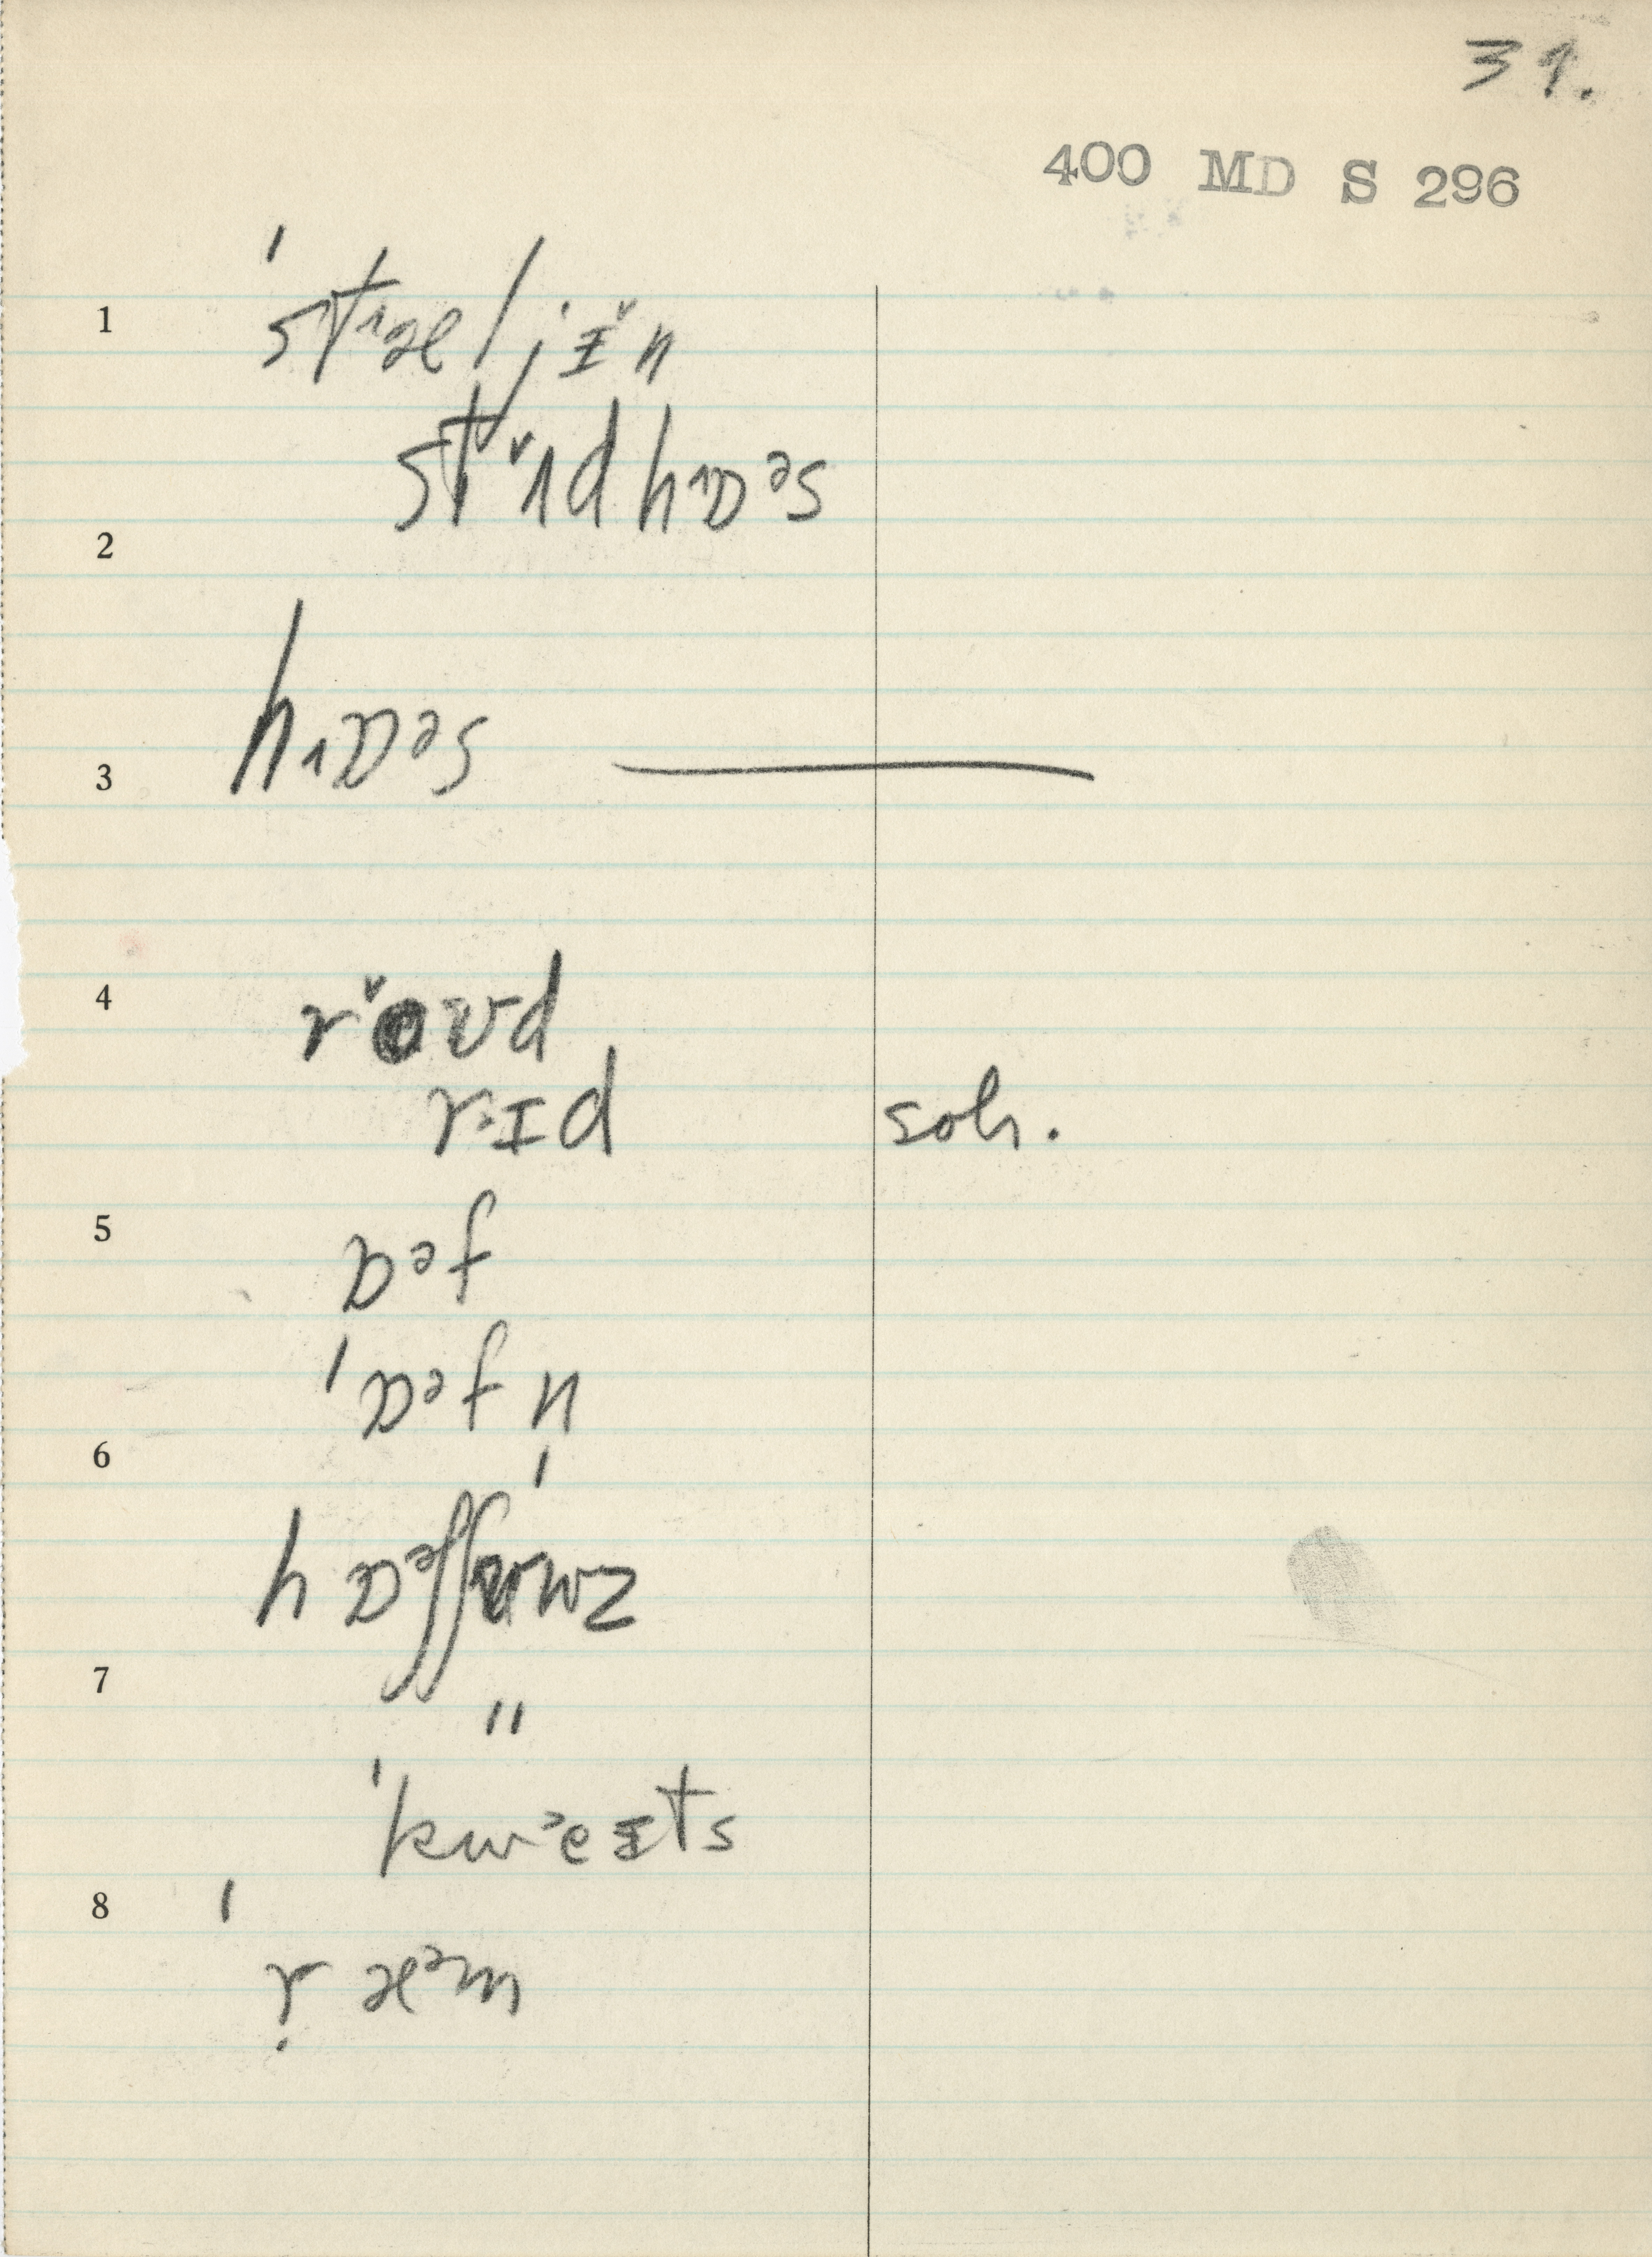 31.
400 MD S 296
1 ˈst˔æljɪ̌n
stˇʌd h˔ɒᵊs
2
3 h˔ɒᵊs
4 rˇoʊd
r˔ɪd soh.
5 ɒᵊf
ˈɒᵊfn
6
hɒᵊfˈfʊwz
7
"
ˈkwᵊeɪts
8
ˈṛæᵊm